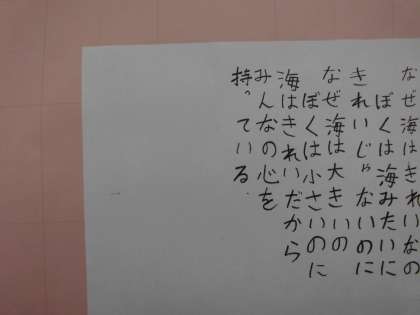 なぜ海はきれいなの
ぼくは海みたいに
きれいじゃないのに
なぜ海は大きいの
ぼくは小さいのに
海はきれいだから
みんなの心を
持っている。